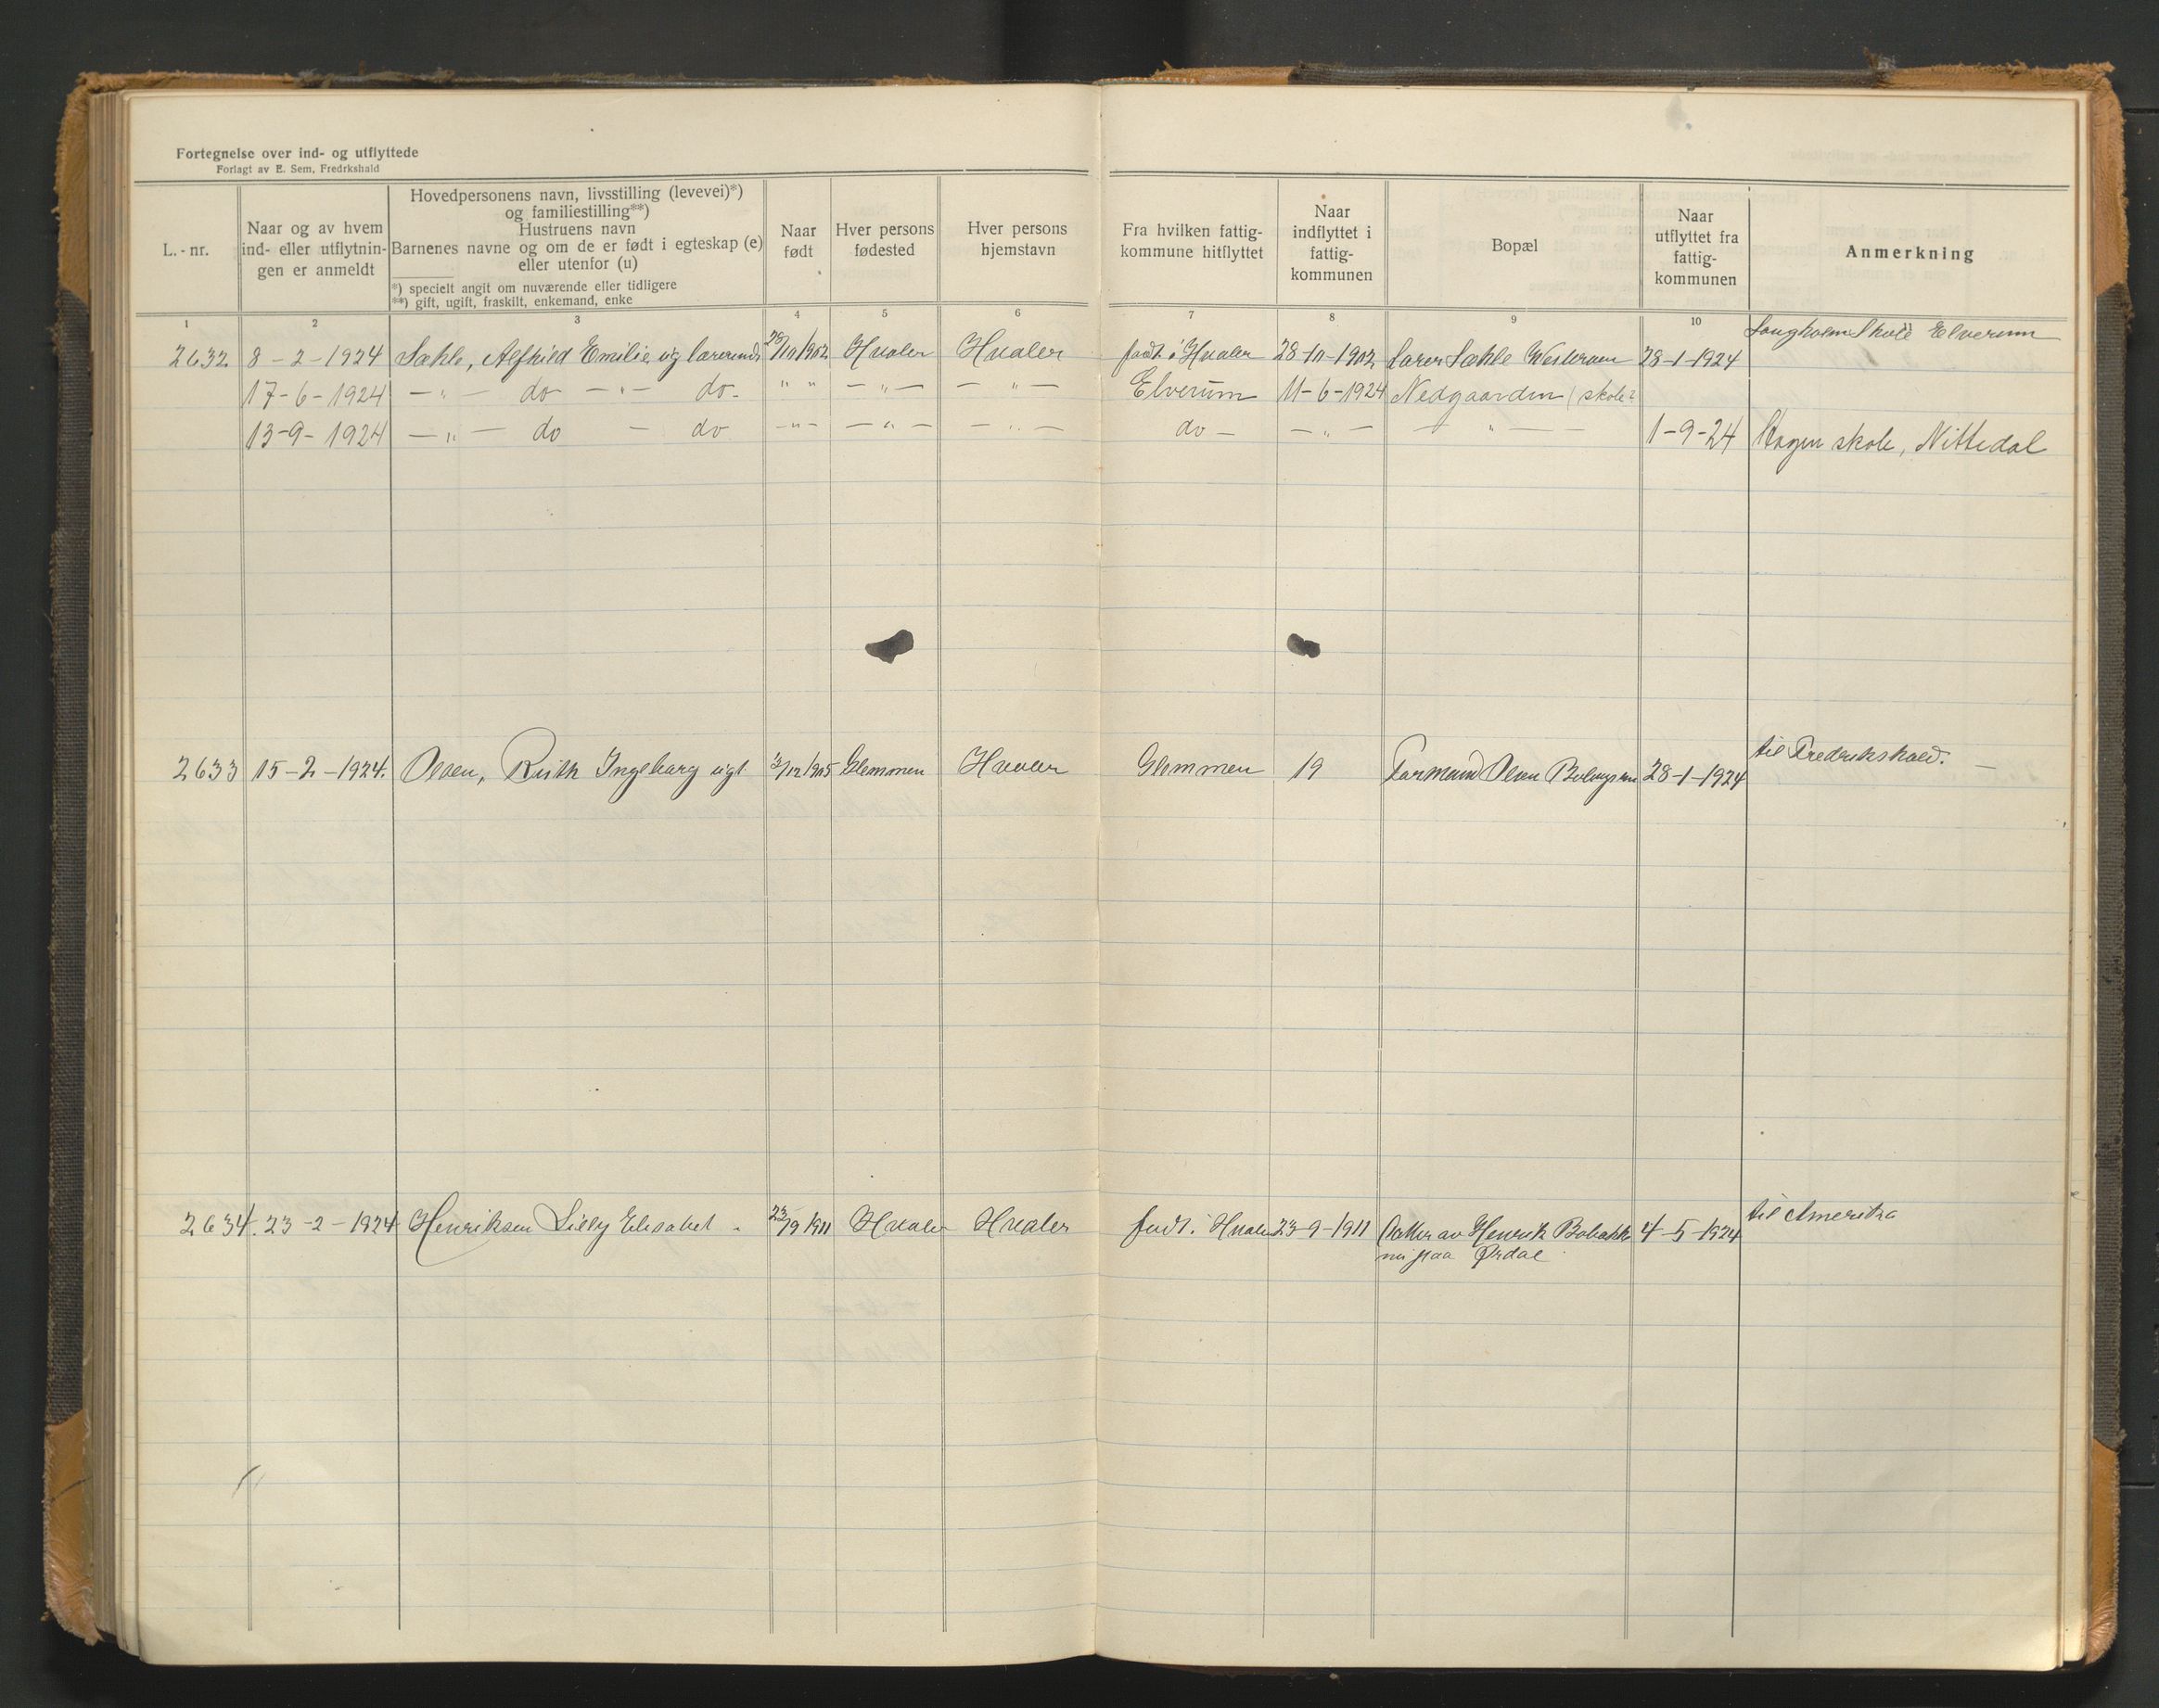 Fortegnelse over ind- og utflyttede
Forlagt av E. Sem, Fredrkshald
L.-nr.
Naar og av hvem
ind- eller utflytnin-
gen er anmeldt
Hovedpersonens navn, livsstilling (levevei)*)
og familiestilling**)
Hustruens navn
Barnenes navne og om de er født i egteskap (e)
eller utenfor (u)
*) specielt angit om nuværende eller tidligere
**) gift, ugift, fraskilt, enkemand, enke
Naar
født
Hver persons
fødested
Hver persons
hjemstavn
Fra hvilken fattig-
kommune hitflyttet
Naar
indflyttet i
fattig-
kommunen
Bopæl
Naar
utflyttet fra
fattig-
kommunen
Anmerkning
1 2 3 4 5 6 7 8 9 10
Skole Elverum
2632 8-2-1924 Sæhle, Alfhild Emilie ug lærerinde 28/10 1902 Hvaler Hvaler født i Hvaler 28-10-1902 Lærer Sæhle 28-1-1924
17-6-1924 -"- do -"- do- " " -"- -"- Elverum 11-6-1924 Nedgaarden (skole)
13-9-1924 -"- do - do -"- -"- -"- do- -"- -"- 1-9-24 skole, Nittedal
til Fredrikshald. -
2633 15-2-1924. Olsen, Ruth Ingeborg ugt /12 1905 Glemmen Hvaler Glemmen 19 Formand Olsen 28-1-1924
til Amerika
2634. 23-2-1924 Henriksen Lilly Elisabet - 23/9 1911 Hvaler Hvaler født i Hvaler 23-9-1911 Datter av Henrik 4-5-1924
nu paa Ørdal